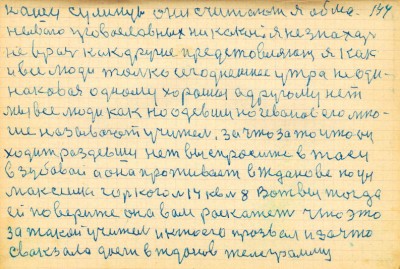 нашей су считают я обма 144
него уговославных никакой я не знахар
не врач как другие представляют я как
и все люди только сегодняшнее утра не оди
накавая одному хорошы а другому нет
мы все люди как но одевши но его мно
гие называют учител. за что за то что он
ходит раздевши нет вы спросите в таси
взубавай а она проживает в жданове по ул
максима горкого м 14 кв м 8 Вот вы тогда
ей поверите она вам раскажет что это
за такой учител и ктоего прозвал и за что
с вакзала дали в жданов телеграмму